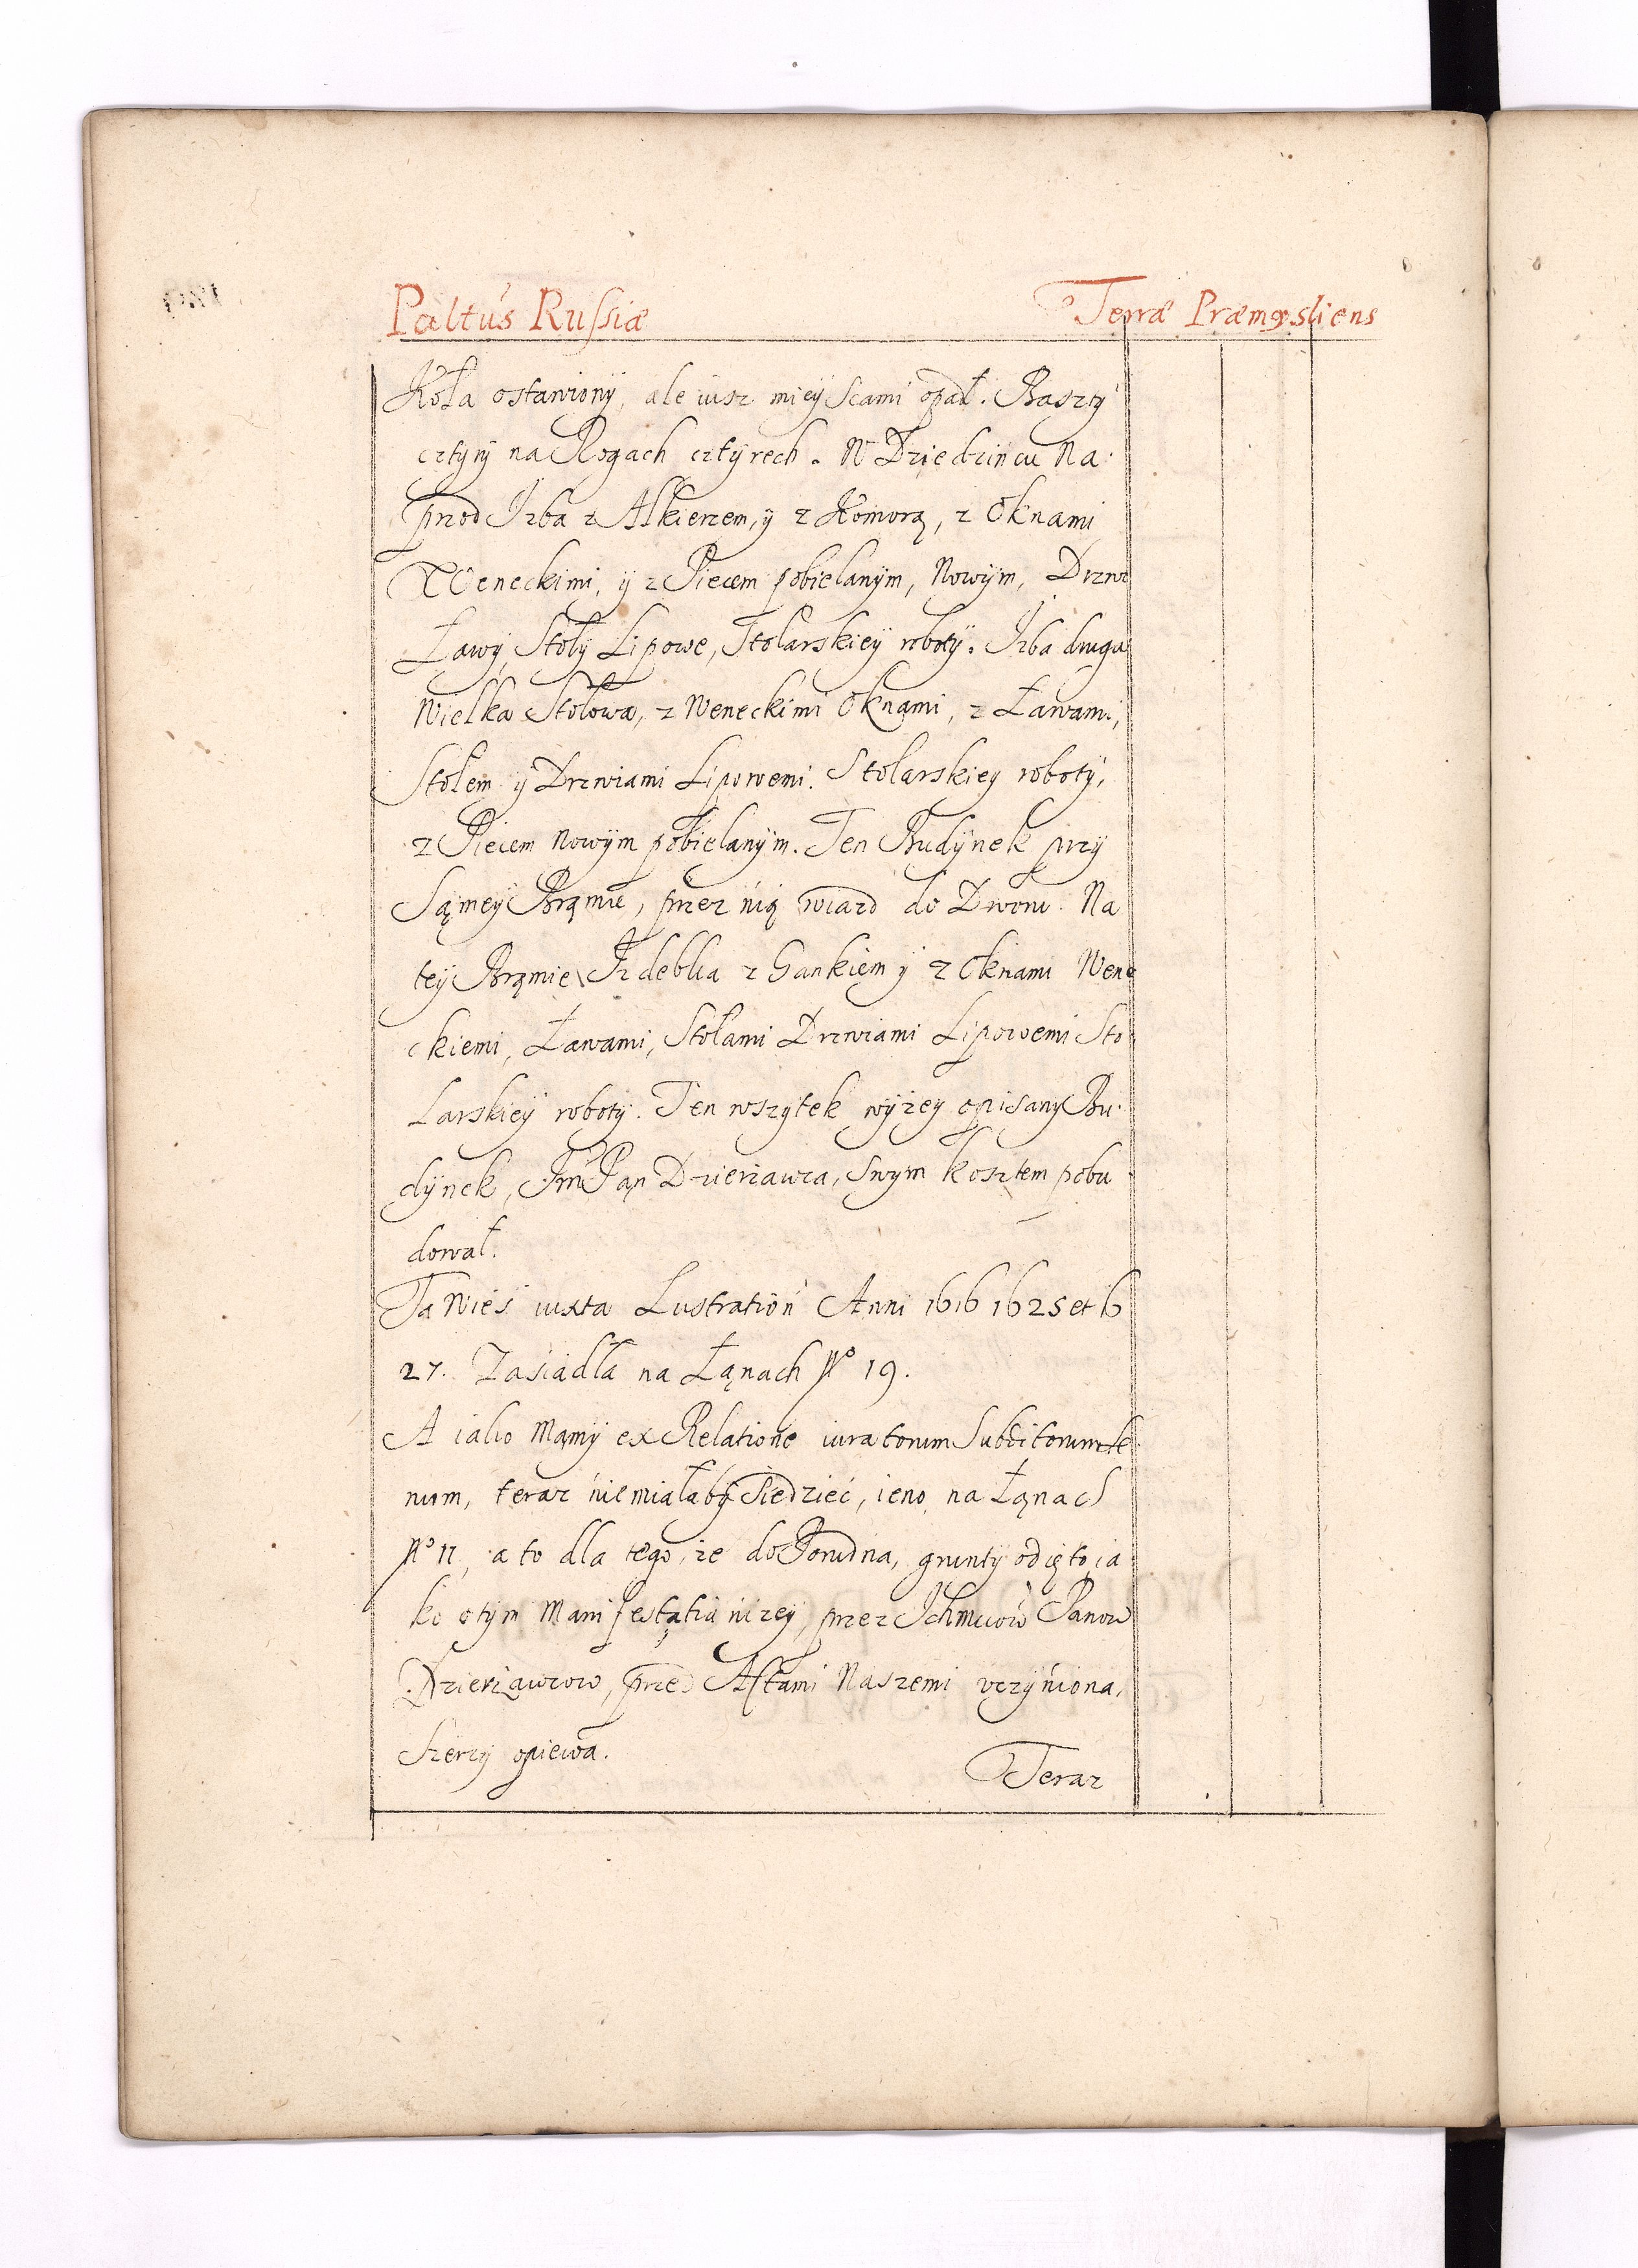 Paltus Russiæ Terræ Præmysliens
Koła ostawiony, ale iusz mieyscami opadł. Baszty
cztyry na Rogach cztyrech. W Dziedzincu Na
przod Izba z Alkierzem, y z Komorą, z Oknami
Weneckimi, y z Piecem pobielanym, Nowym, Drzwi
Ławy, Stoły Lipowe, Stolarskiey roboty. Izba druga
Wielka Stołowa, z Weneckimi Oknami, z Ławami,
Stołem y Drzwiami Lipowemi. Stolarskiey roboty,
z Piecem Nowym pobielanym. Ten Budynek przy
Sąmey Brąmie, przez nię wiazd do Dworu. Na
tey Brąmie Izdebka z Gankiem y z Oknami Wene
ckiemi, Ławami, Stołami Drzwiami Lipowemi Sto
Larskiey roboty. Ten wszytek wyżey opisany Bu
dynek, Jm Pąn Dzierżawca, Swym kosztem pobu
dował.
Ta Wieś iuxta Lustration Anni 1616 1625 et 16
27. Zasiadła na Łąnach No 19.
A iako Mąmy ex Relatione iuratorum Subditorum
num, teraz niemiałaby Siedzieć, ieno na Łąnach
No 11, a to dla tego, że do grunty odięto ia
ko o tym Manifestatia niżey, przez Ichmciow Panow
Dzierżawcow, przed Aktami Naszemi uczyniona,
Szerzy opiewa.
Teraz